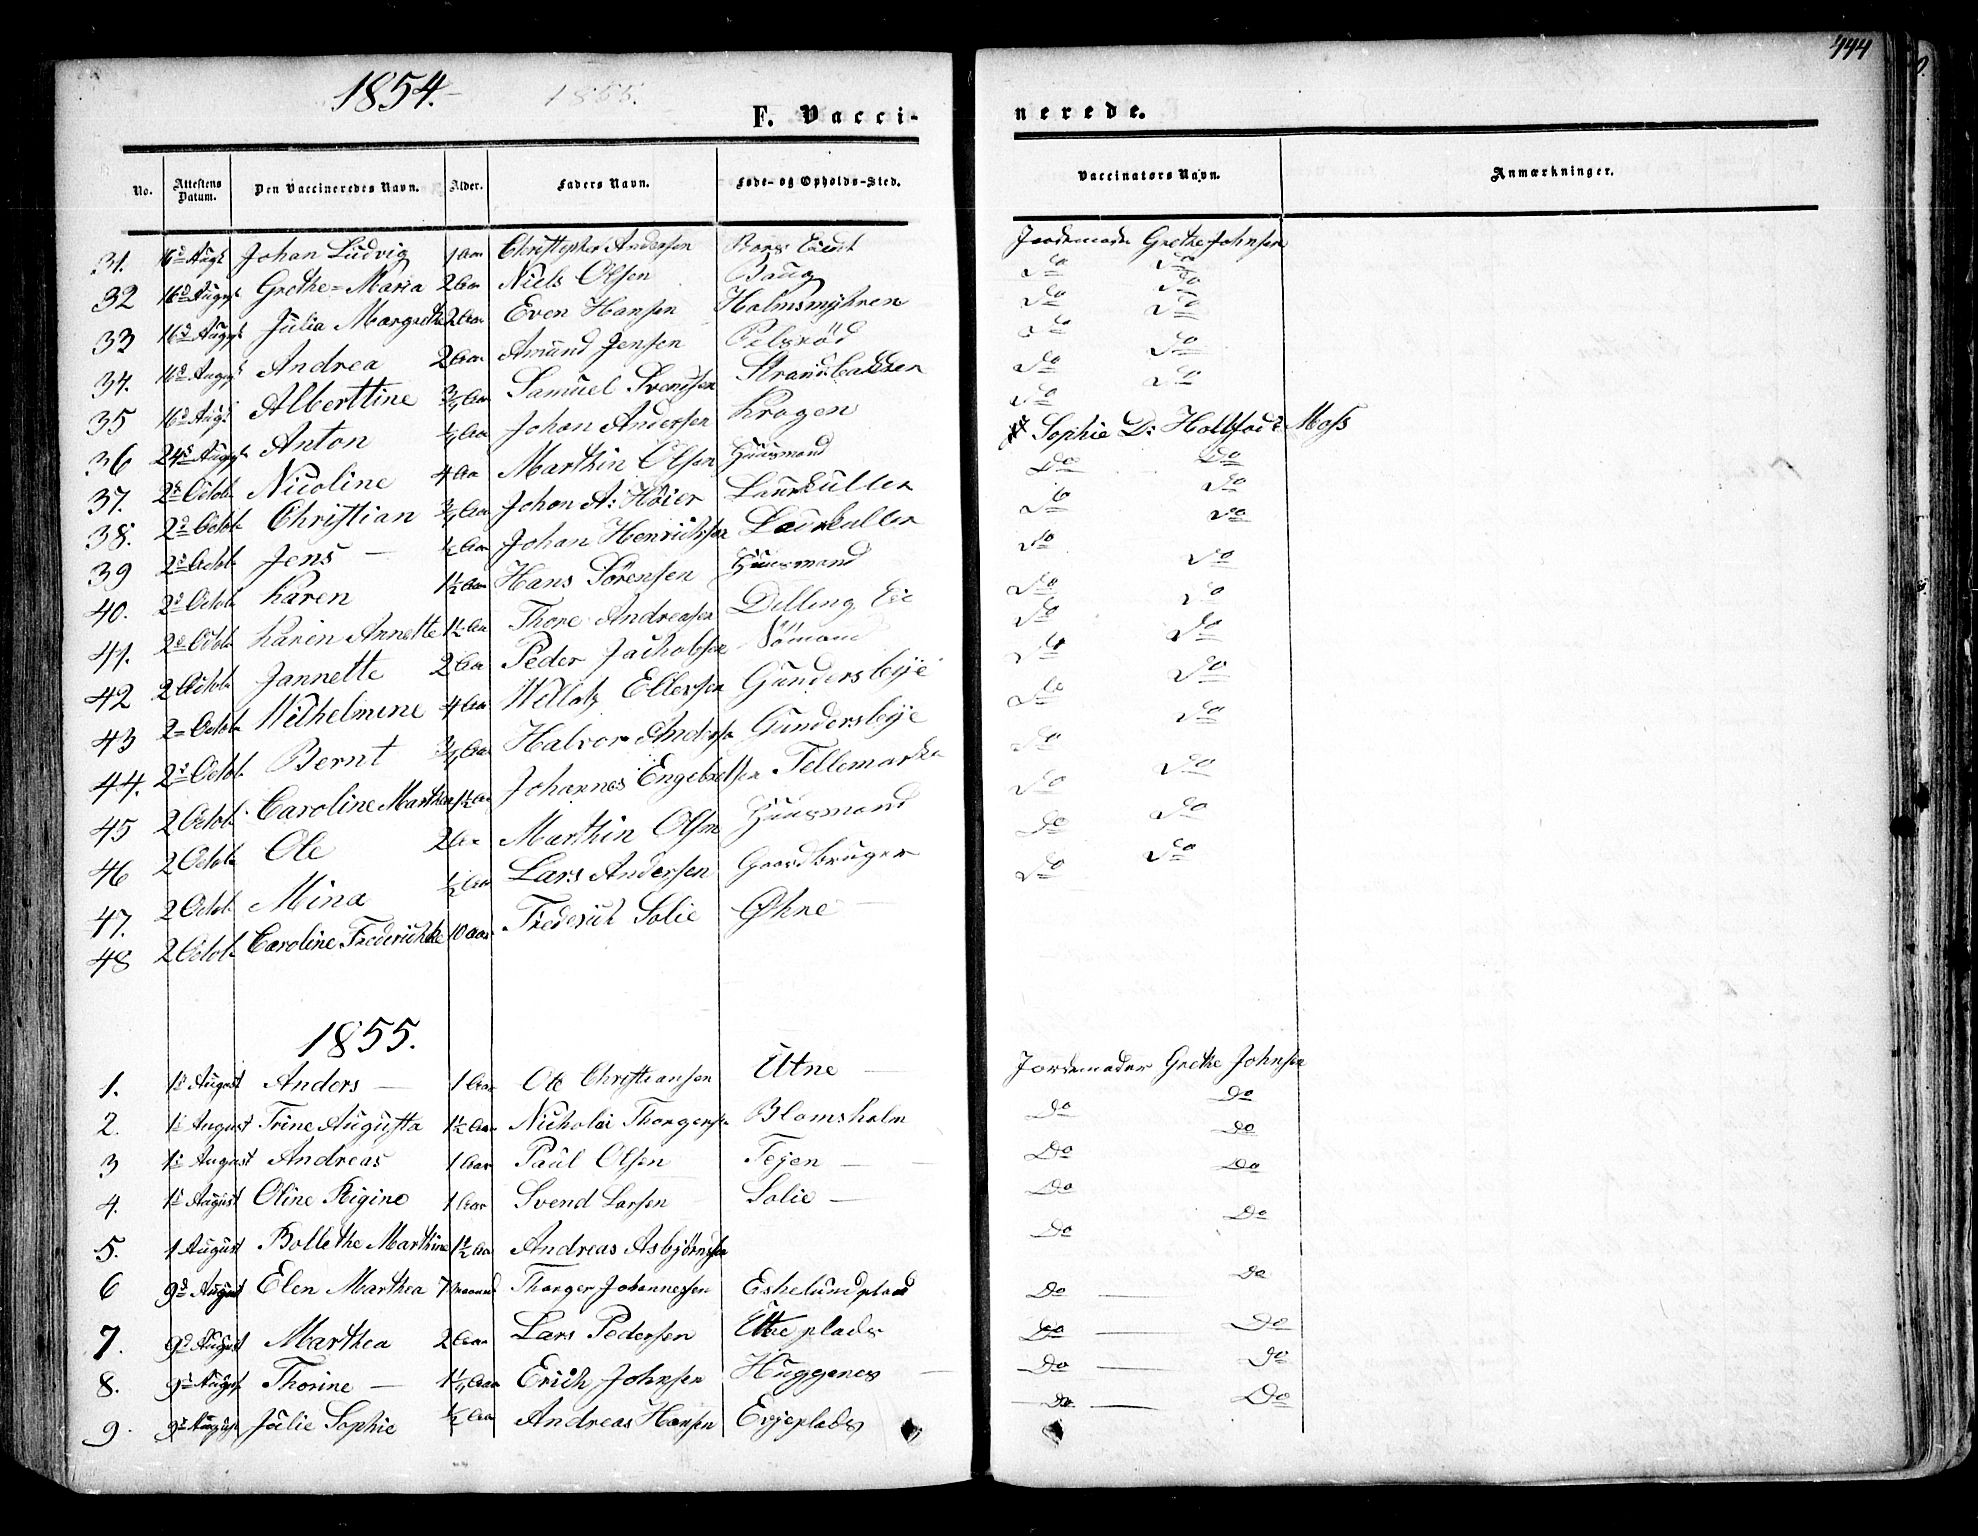 444
1854. 1855.
F. Vacci- nerede.
No. Attestens Datum. Den Vaccineredes Navn. Alder. Faders Navn. Føde- og Opholds-Sted. Vaccinators Navn. Anmærkninger.
31. 16d Augt Johan Ludvig 1 Aar Christopher Andersen Jordemoder Grethe Johnsen
32 16d August Grethe=Maria 2 Aar Niels Olsen Baug Do Do
33 16d August Julia Margrethe 2 Aar Even Hansen Holmsmyhren Do Do
34. 16d August Andrea 2 Aar Amund Jensen Pelsröd Do Do
35 16d Augt Alberttine 3/4 Aar Samuel Svendsen Strandbakken Do Do
36 24d August Anton 1/4 Aar Johan Andersen Krogen Do Do
37. 2d Octob Nicoline 4 Aar Marthin Olsen Huusmand Sophie D: Hallfod Moss
38. 2d Octob Christian 3/4 Aar Johan A: Höier Laurkullen Do Do
39 2d Octob Jens — 1/2 Aar Johan Henrichsen Laurkullen Do Do
40. 2d Octob Karen 1 1/2 Aar Hans Sörensen Huusmand Do Do
41. 2d Octob Karen Annette 1 1/2 Aar Thore Andreasen Dilling Eie Do Do
42 2 Octob Jannette 2 Aar Peder Jachobsen Sömand Do Do
43 2 Octob Wilhelmine 4 Aar Ellersen Gundersbye Do Do
44. 2d Octob Bernt 3/4 Aar Halvor Anders Gundersbye Do Do
45 2 Octob Caroline Marthea 1 1/2 Aar Johannes Engebretsen Tellemarken Do Do
46 2 Octob Ole 2 Aar Marthin Olsen Huusmand Do Do
47. 2 Octob Mina 1/2 Aar Lars Andersen Gaardbruger Do Do
48 2 Octob Caroline Frederikke 10 Aar Frederich Solie Øhne — Do Do
1855.
1. 1d August Anders — 1 Aar Ole Christiansen Utne — Jordemoder Grethe Johnsen
2. 1d August Trine Augusta 1 1/2 Aar Nicholai Thorgersen Blomsholm Do Do
3 1d August Andreas 1 Aar Paul Olsen Tejen — Do Do
4. 1d August Oline Rigine 1 Aar Svend Larsen Solie — Do Do
5. 1 August Bollethe Marthine 1 1/2 Aar Andreas Asbjörnsen Do Do
6 9d August Elen Marthea 7 Maaned Thorger Johannessen Eskelundplads Do — Do
7. 9d August Marthea 2 Aar Lars Pedersen Utne plads Do — Do
8. 9d August Thorine — 1 1/4 Aar Erich Johnsen Huggenes — Do — Do
9. 9d August Julie Sophie 1/2 Aar Andreas Hansen Evjeplads Do — Do